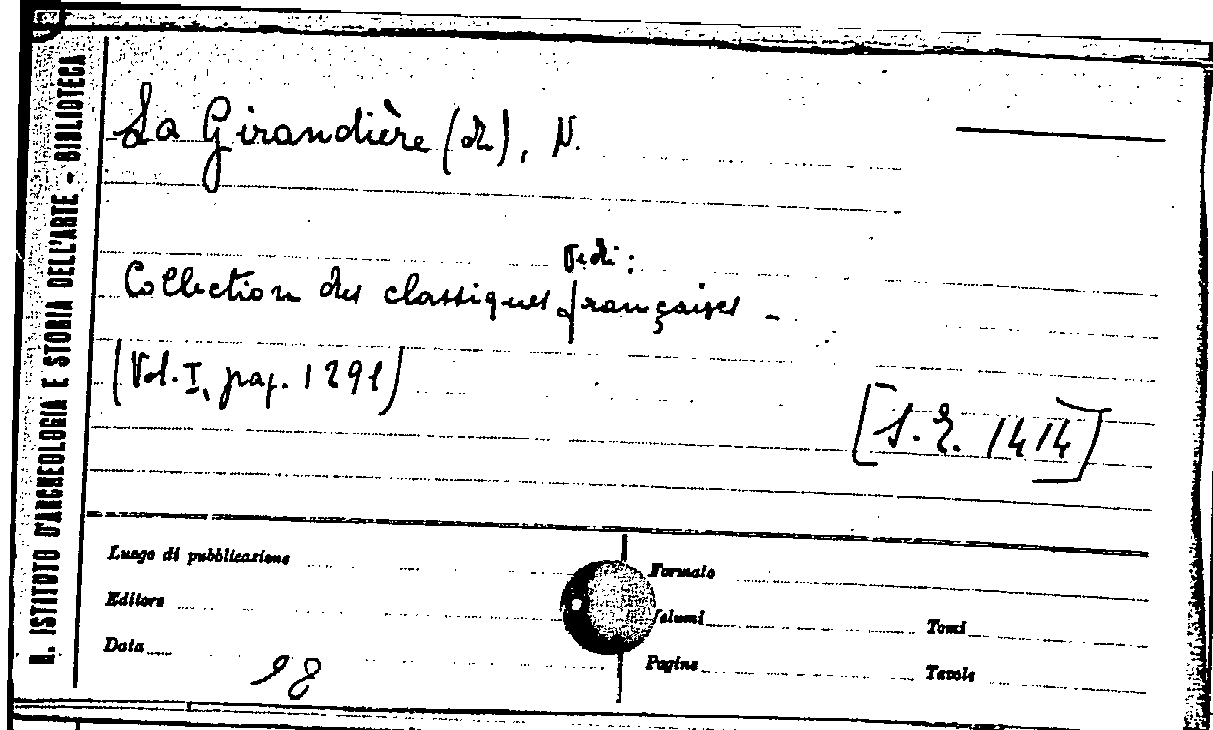 R. ISTITUTO D'ARCHEOLOGIA E STORIA DELL'ARTE - BIBLIOTECA
La Girandière (de), N.
Vedi:
Collection des classiques françaises -
(Vol. I, pag. 1291)
[S.E. 1414]
Luogo di pubblicazione
Formato
Editore
Volumi
Tomi
Data
Pagine
Tavole
98